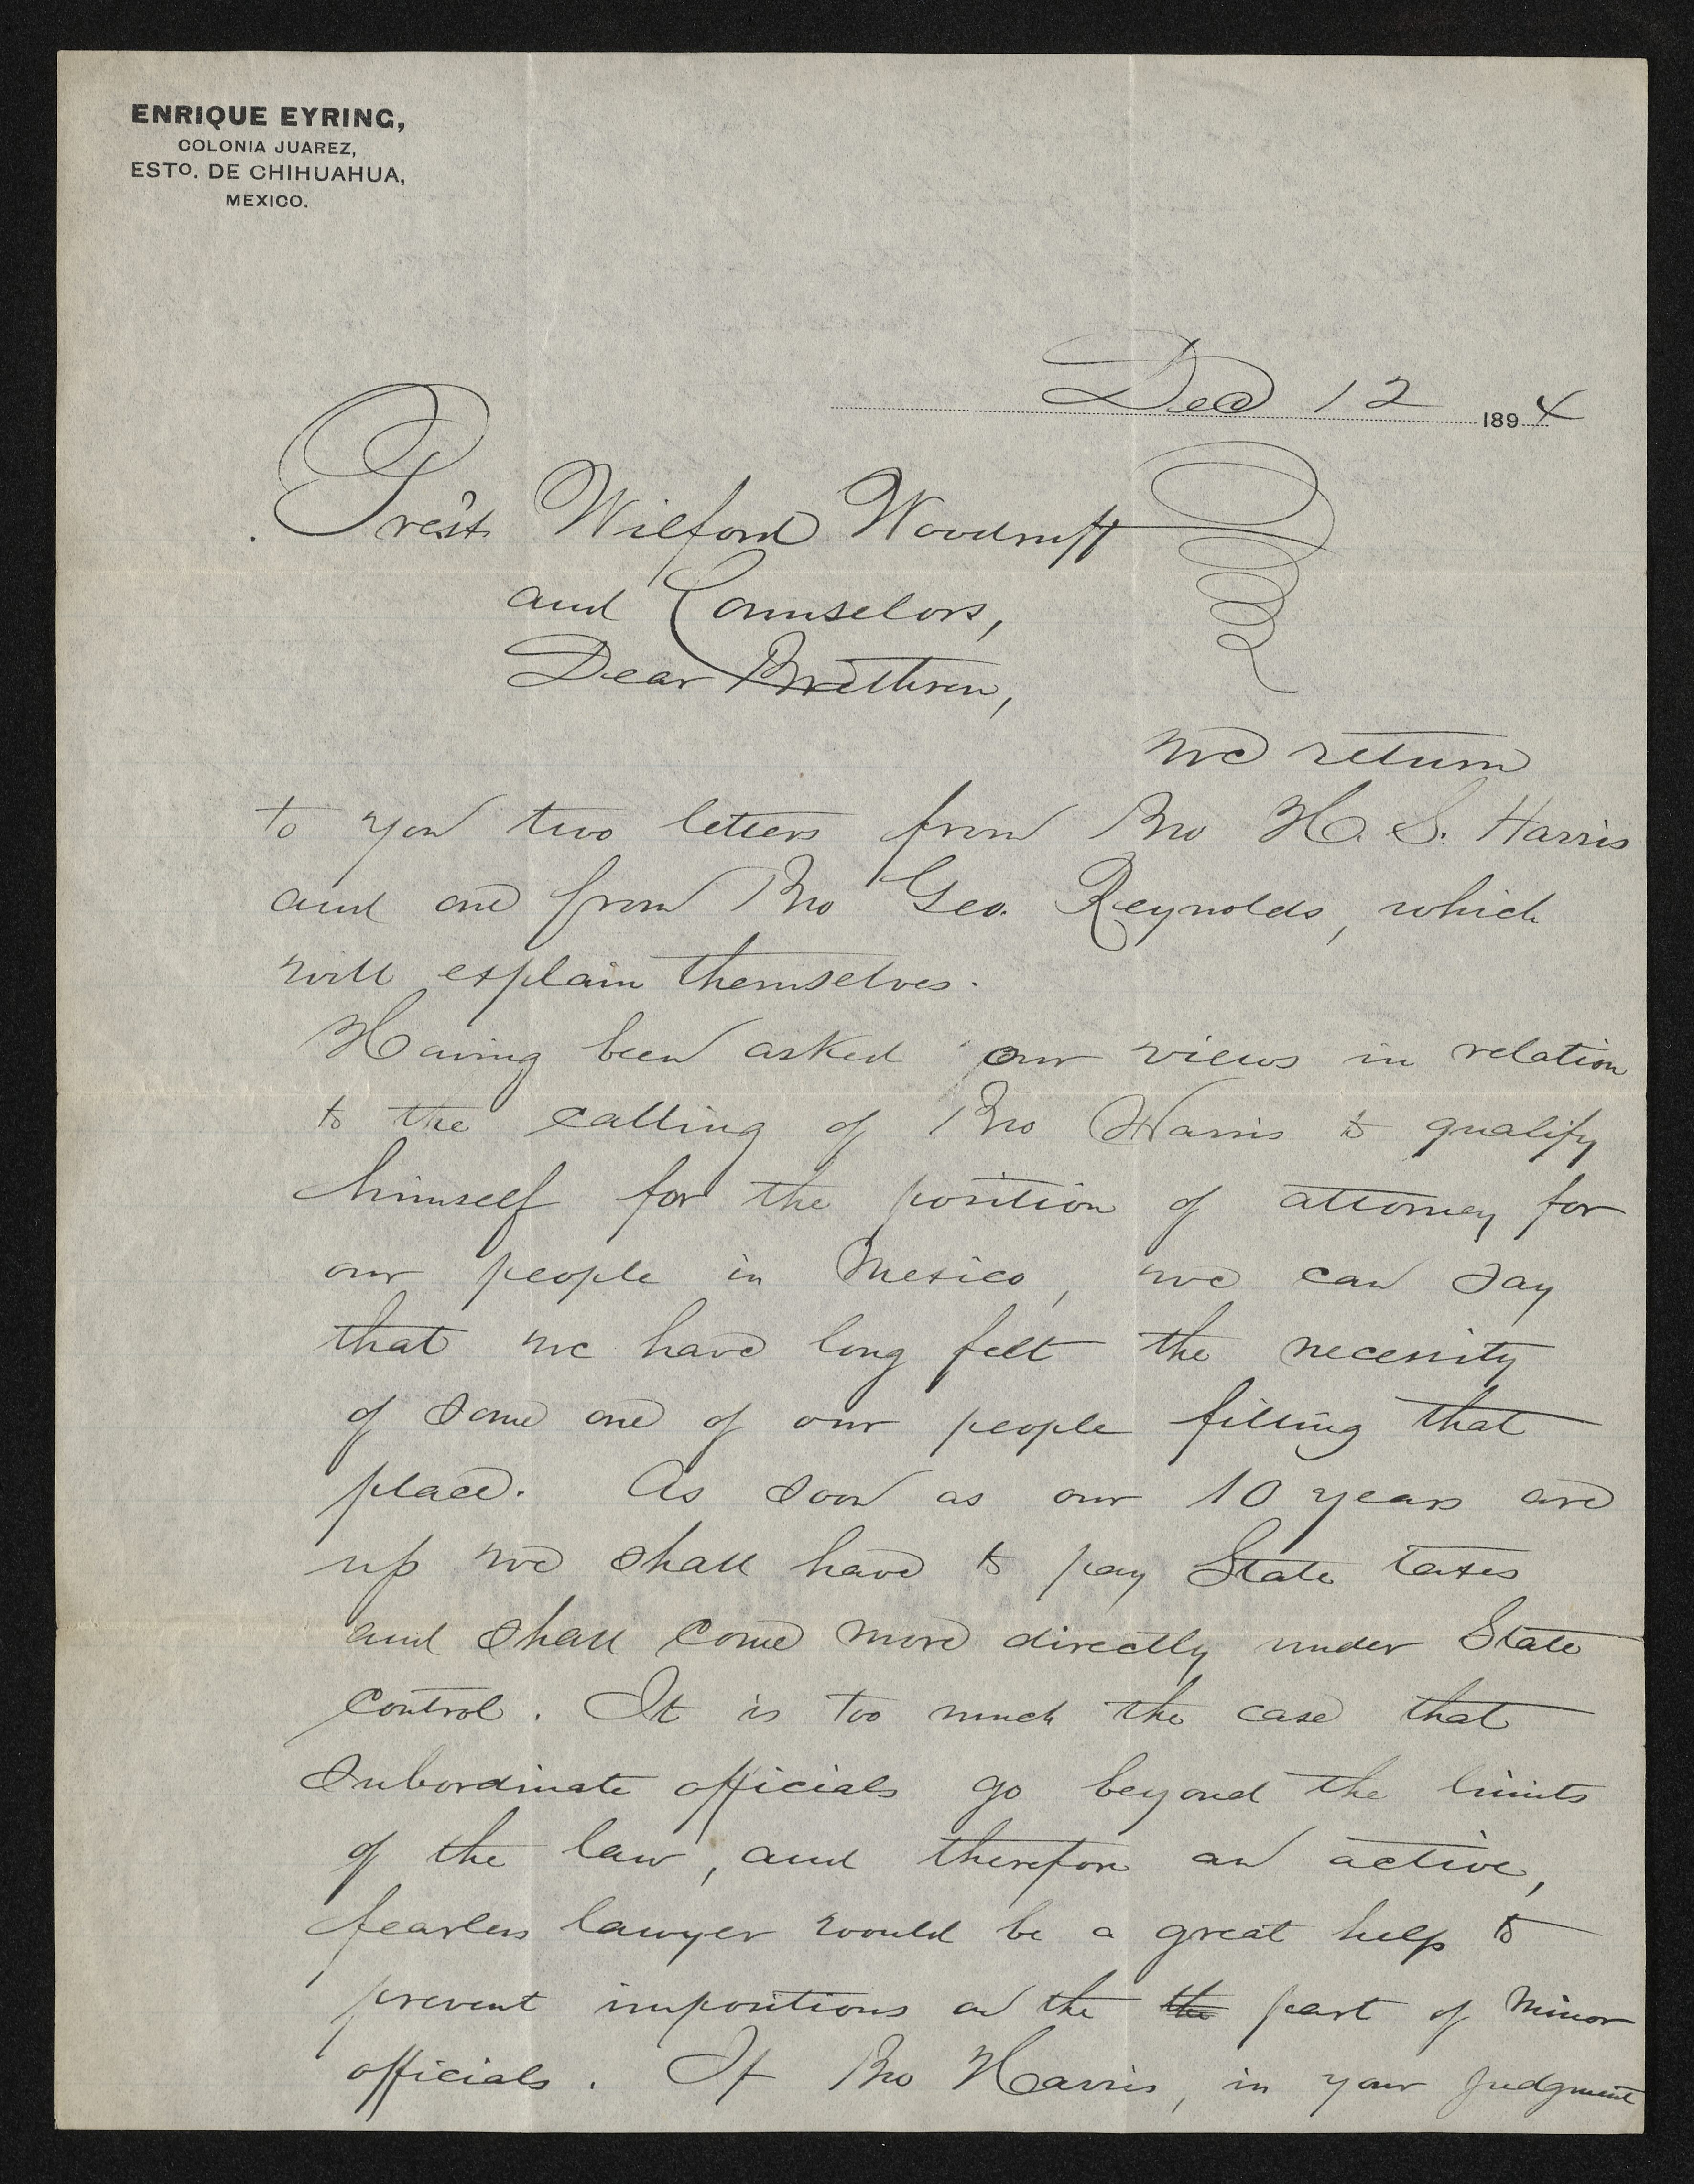 ENRIQUE EYRING,
COLONIA JUAREZ,
ESTO. DE CHIHUAHUA,
MEXICO.
Dec 12 1894
Prest. Wilford Woodruff
and Counselors,
Dear Brethren,
we return
to you two letters from Bro H. S. Harris
and one from Bro Geo. Reynolds, which
will explain themselves.
Having been asked our views in relation
to the calling of Bro Harris to qualify
himself for the position of attorney for
our people in Mexico, we can say
that we have long felt the necessity
of some one of our people filling that
place. As soon as our 10 years are
up we shall have to pay State taxes
and shall come more directly under State
control. It is too much the case that
subordinate officials go beyond the limits
of the law, and therefore an active,
fearless lawyer would be a great help to
prevent impositions on the the part of minor
officials. If Bro Harris, in your judgment